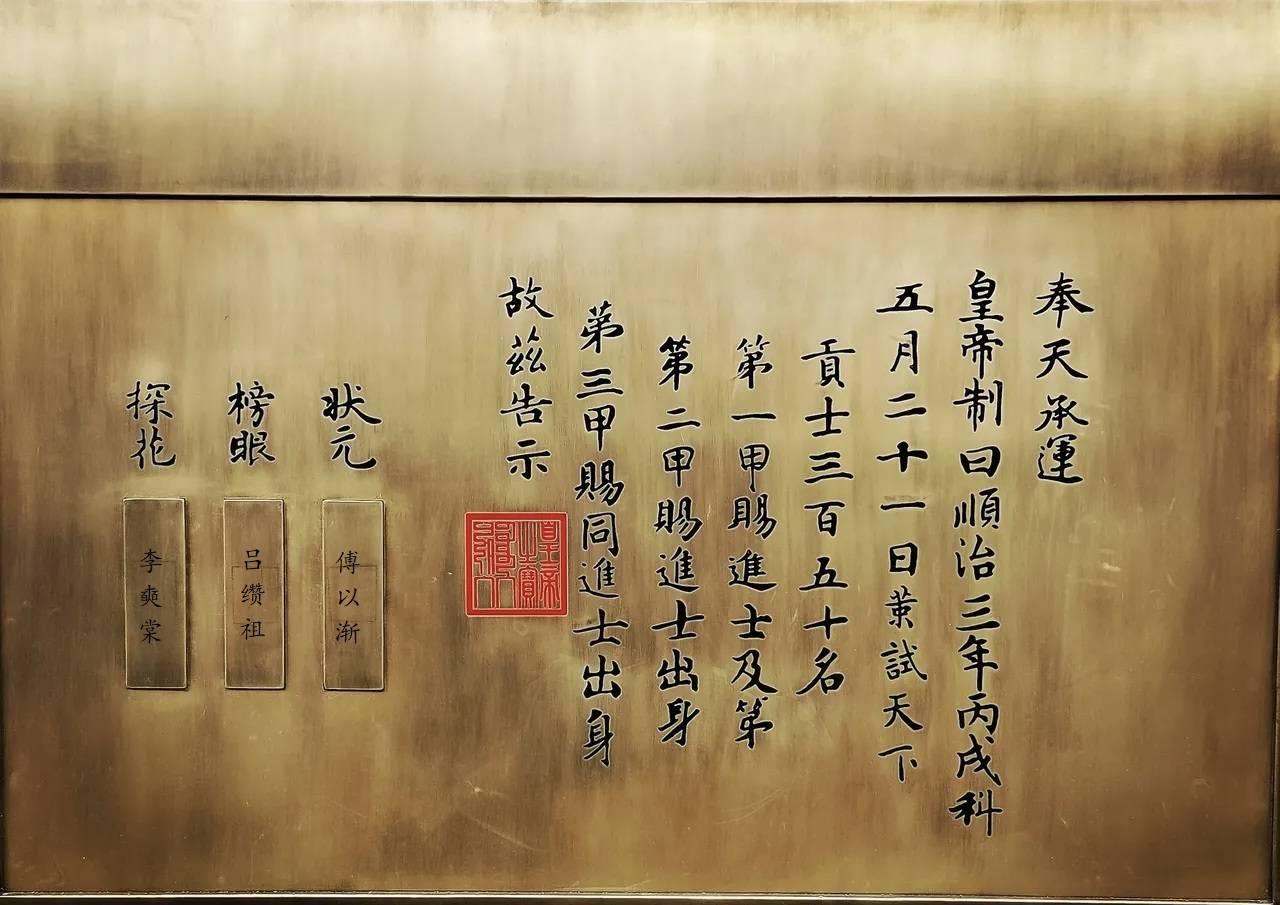 奉天承運
皇帝制曰順治三年丙戌科
五月二十一日䇿試天下
貢士三百五十名
第一甲賜進士及第
第二甲賜進士出身
第三甲賜同進士出身
故茲告示
皇帝之寶
狀元
傅以渐
榜眼
吕缵祖
探花
李奭棠